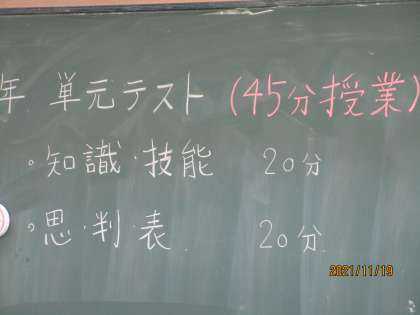 年 単元テスト (45分授業)
。知識・技能 20分
。思・判・表 20分
2021/11/19